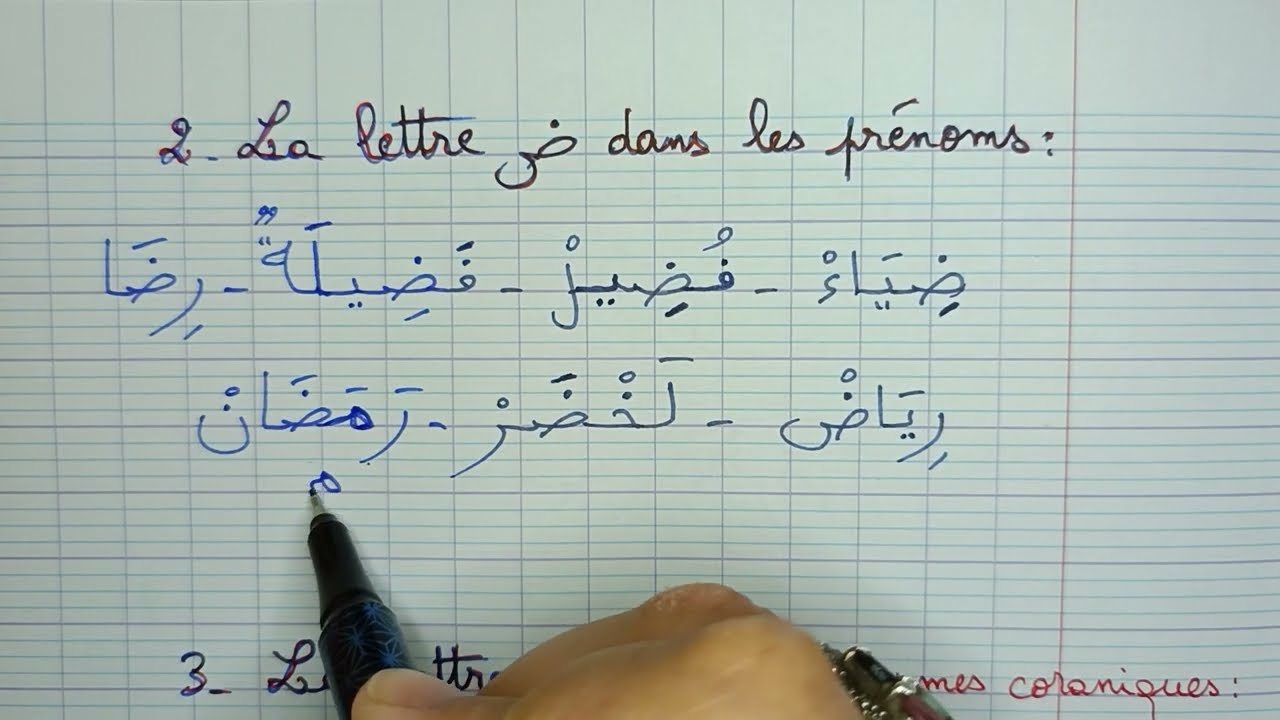 2- La lettre ض dans les prénoms:
ضِيَاءْ - فُضِيلْ - فَضِيلَةٌ - رِضَا
رِيَاضْ - لَخْضَرْ - رَمَضَانْ
م
3- La lettre coraniques: